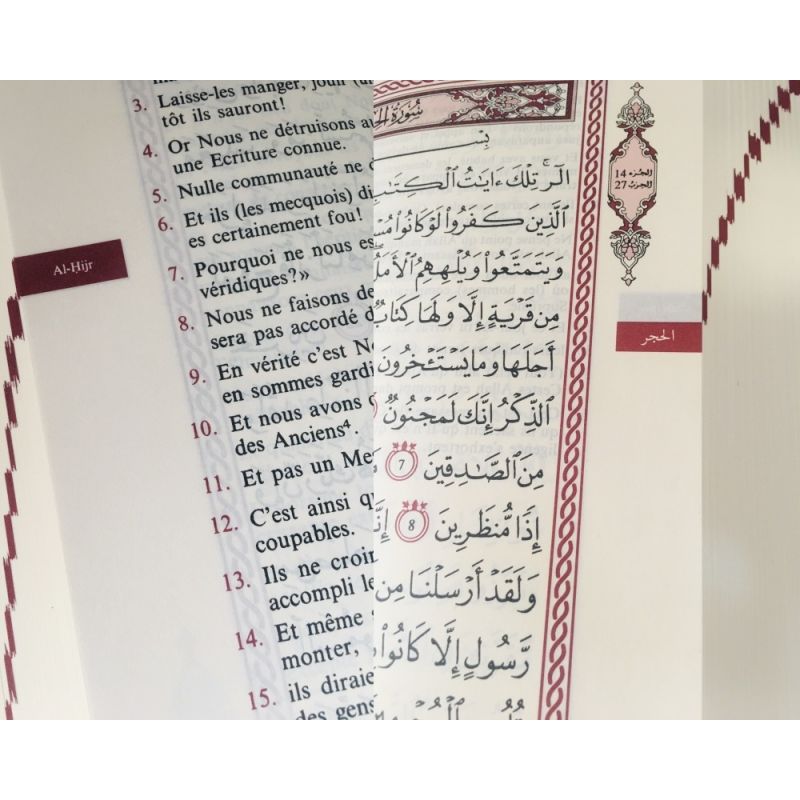 Al-Ḥijr
3. Laisse-les manger, jouir
tôt ils sauront!
4. Or Nous ne détruisons
une Ecriture connue.
5. Nulle communauté ne
6. Et ils (les mecquois)
es certainement fou!
7. Pourquoi ne nous
véridiques?»
8. Nous ne faisons
sera pas accordé
9. En vérité c'est
en sommes
10. Et nous avons
des Anciens⁴.
11. Et pas un
12. C'est ainsi
coupables.
13. Ils ne
accompli
14. Et même
monter,
15. ils
des
سُورَةُ
الٓر تِلْكَ ءَايَاتُ
الَّذِينَ كَفَرُوا لَوْ كَانُوا
وَيَتَمَتَّعُوا وَيُلْهِهِمُ
مِن قَرْيَةٍ إِلَّا وَلَهَا كِتَابٌ
أَجَلَهَا وَمَا يَسْتَـْٔخِرُونَ
الذِّكْرُ إِنَّكَ لَمَجْنُونٌ
مِنَ الصَّٰدِقِينَ 7
إِذًا مُّنظَرِينَ 8
وَلَقَدْ أَرْسَلْنَا مِن
رَّسُولٍ إِلَّا كَانُوا
الجزء 14
الحزب 27
الحجر